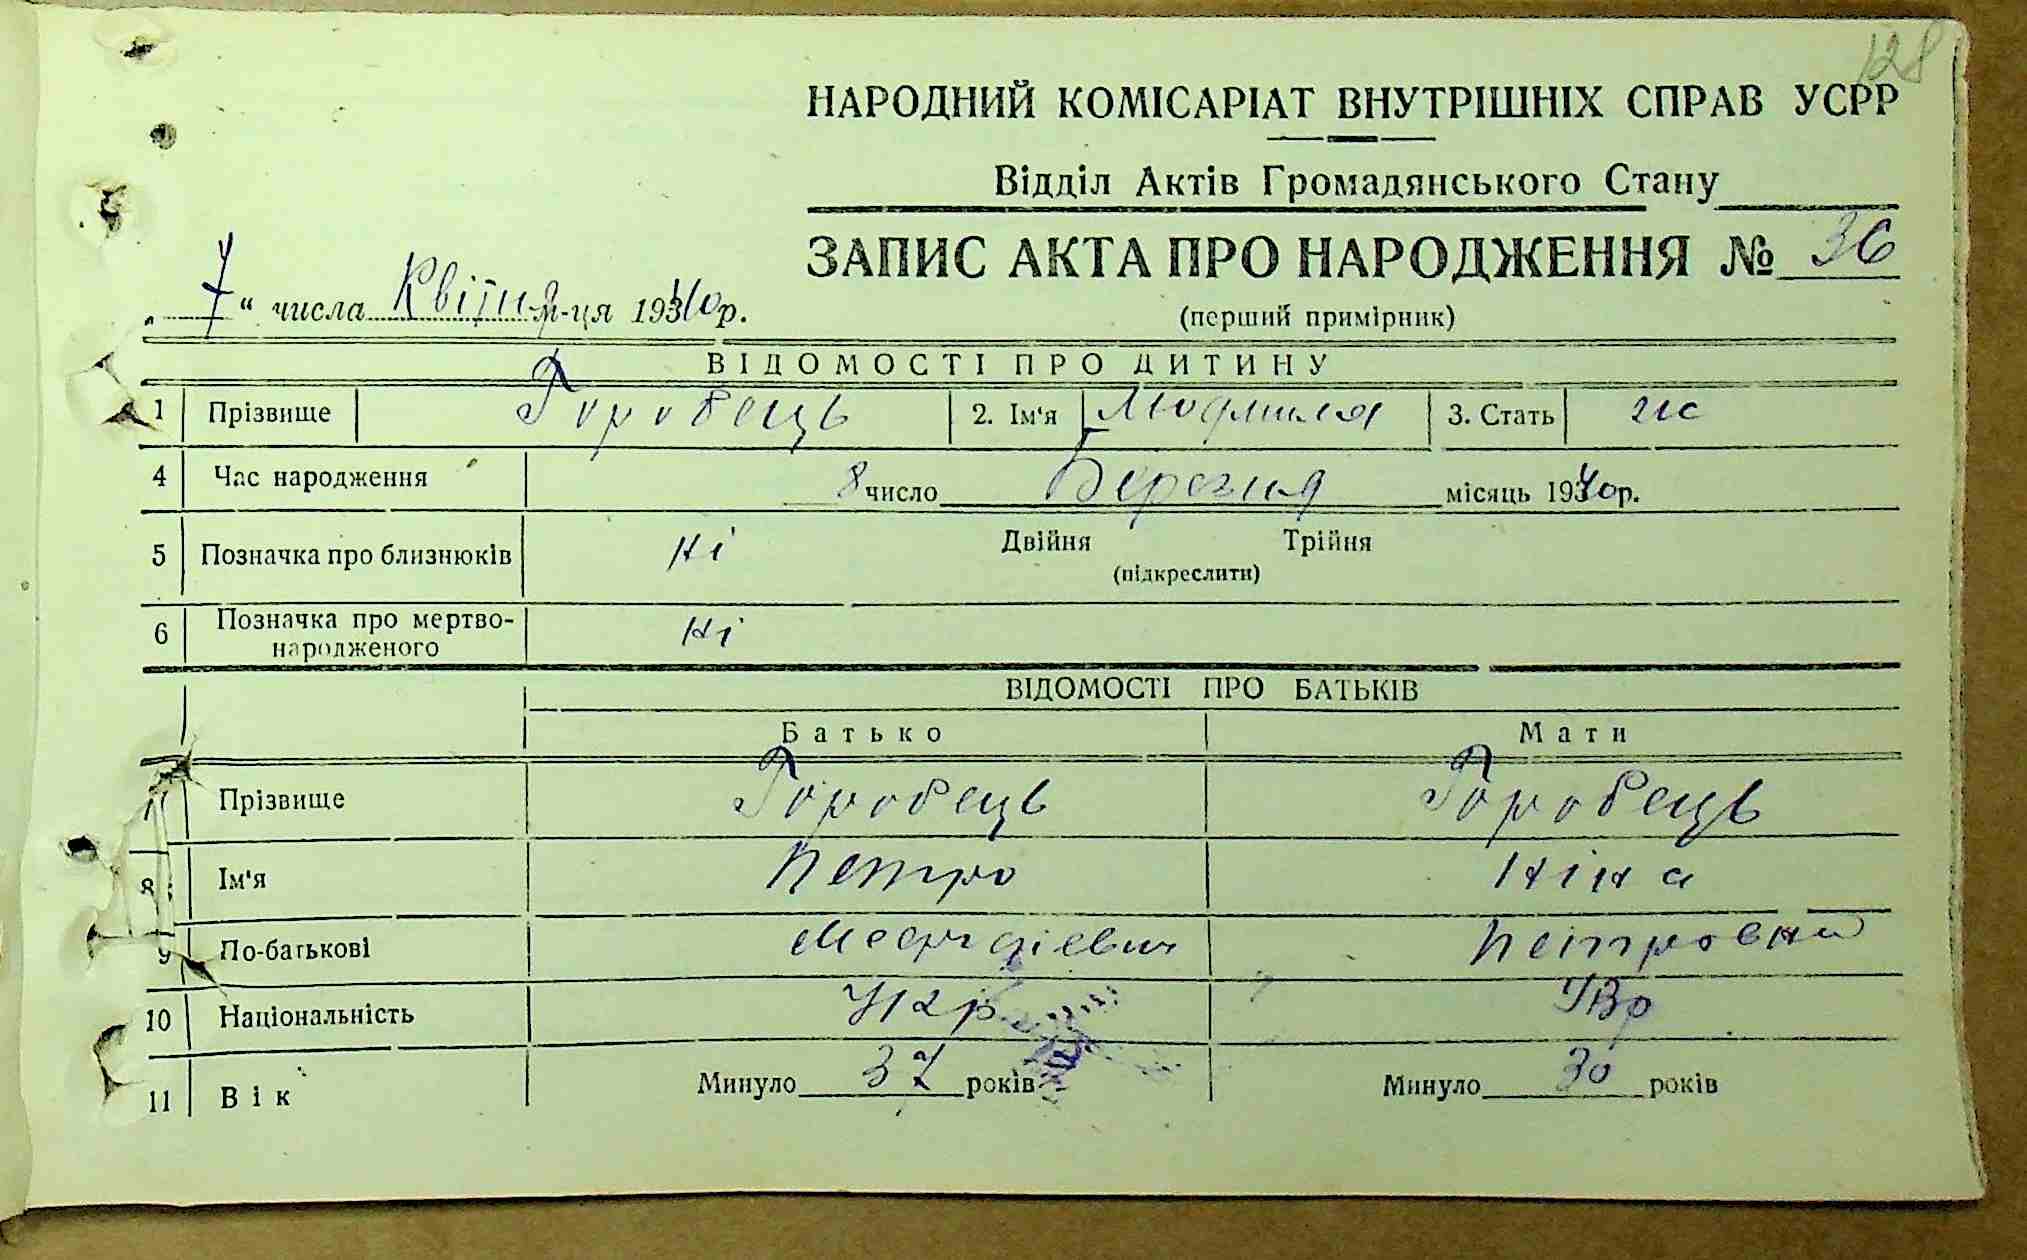 128
НАРОДНИЙ КОМІСАРІАТ ВНУТРІШНІХ СПРАВ УСРР
Відділ Актів Громадянського Стану
ЗАПИС АКТА ПРО НАРОДЖЕННЯ № 36
„7“ числа Квітня м-ця 1940р.
(перший примірник)
ВІДОМОСТІ ПРО ДИТИНУ
1 Прізвище Горобець 2. Ім'я Людмила 3. Стать жс
4 Час народження 8 число Березня місяць 1940р.
5 Позначка про близнюків Ні Двійня Трійня
(підкреслити)
6 Позначка про мертво-
народженого Ні
ВІДОМОСТІ ПРО БАТЬКІВ
Батько Мати
7 Прізвище Горобець Горобець
8 Ім'я Петро Ніна
9 По-батькові Петровна
10 Національність Укр
11 Вік Минуло 37 років Минуло 30 років